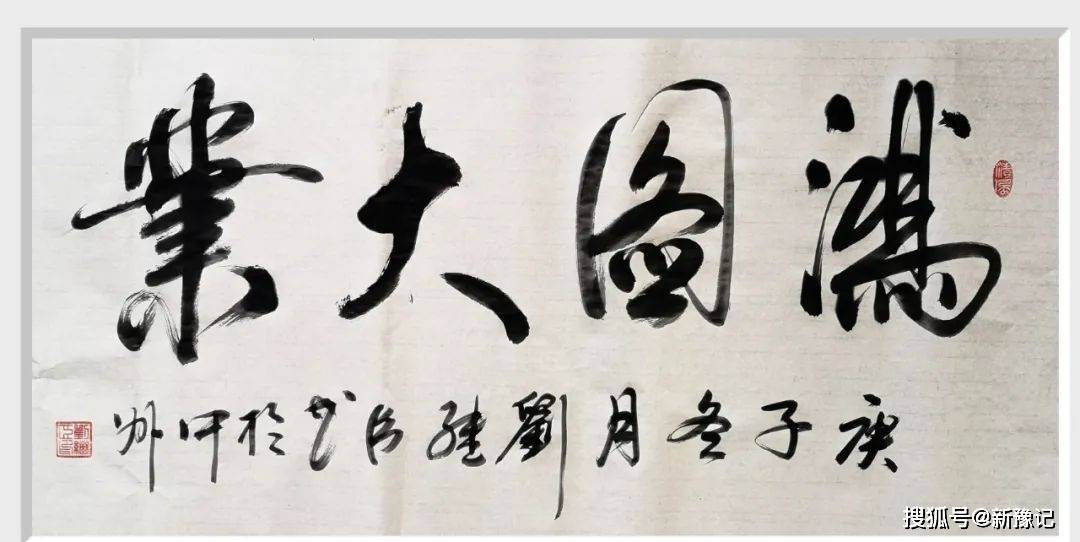 鴻图大業
庚子冬月劉继臣书於中州
搜狐号@新豫记